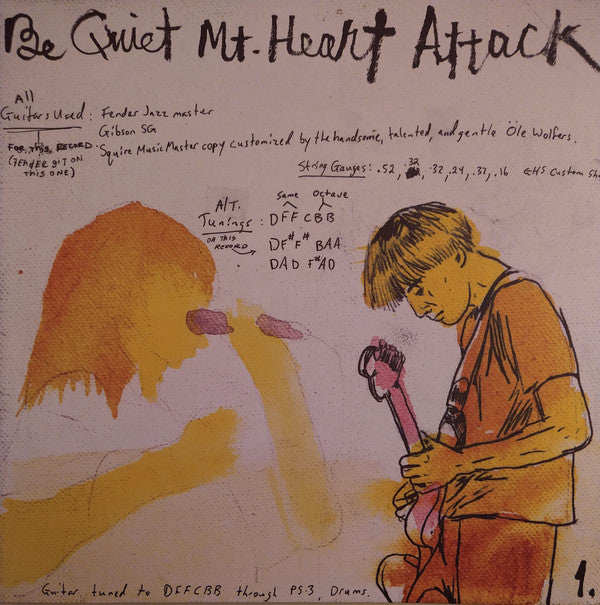 Be Quiet Mt. Heart Attack
All
Guitars Used : Fender Jazz master
Gibson SG
Squire MusicMaster copy customized by the handsome, talented, and gentle Öle Wolfers.
FOR THIS RECORD
(
ON
THIS ONE)
String Gauges: .52, .32, .32, .24, .32, .16 GHS Custom Sh
Same Octave
A/T.
Tunings : DFFCBB
ON THIS
RECORD
DF#F# BAA
DAD F#AD
Guitar tuned to DFFCBB through PS-3, Drums.
1.